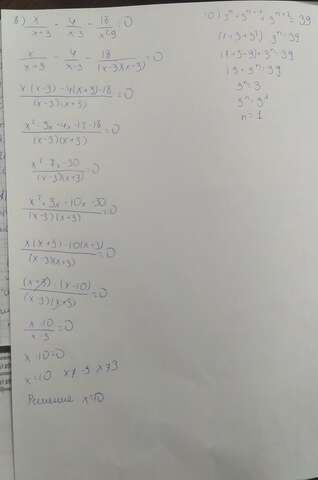 в) x/(x+3) - 4/(x-3) - 18/(x²9) = 0
x/(x+3) - 4/(x-3) - 18/((x-3)(x+3)) = 0
(x(x-3) - 4(x+3) - 18)/((x-3)(x+3)) = 0
(x² - 3x - 4x - 12 - 18)/((x-3)(x+3)) = 0
(x² - 7x - 30)/((x-3)(x+3)) = 0
(x² + 3x - 10x - 30)/((x-3)(x+3)) = 0
(x(x+3) - 10(x+3))/((x-3)(x+3)) = 0
((x+3) · (x-10))/((x-3)(x+3)) = 0
(x-10)/(x-3) = 0
x-10=0
x=10 x≠-3 x≠3
Решение x=10
3ⁿ = 3
3ⁿ = 3¹
n = 1